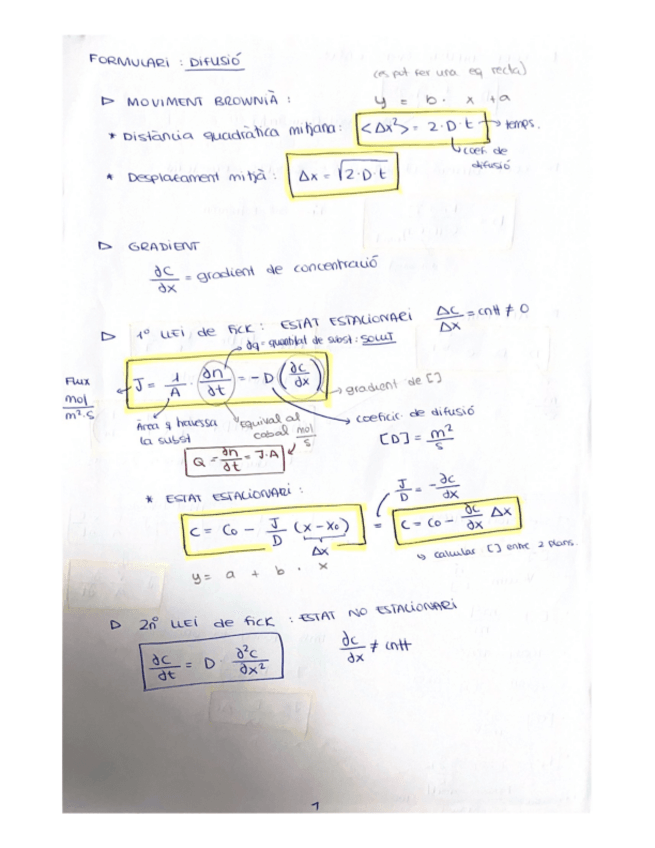 FORMULARI : DIFUSIÓ
(es pot fer una eq recta)
▷ MOVIMENT BROWNIÀ :
y = b · x + a
* Distància quadràtica mitjana : <Δx²> = 2·D·t → temps.
↳ coef. de difusió
* Desplaçament mitjà : Δx = √2·D·t
▷ GRADIENT
∂c/∂x = gradient de concentració
▷ 1º LLEI de FICK : ESTAT ESTACIONARI Δc/Δx = cntt ≠ 0
→ dq = quantitat de subst : SOLUT
Flux mol/m²·s ← J = 1/A · ∂n/∂t = -D (∂c/∂x) → gradient de []
Àrea q travessa la subst
Equival al cabal mol/s
→ coeficic. de difusió
[D] = m²/s
Q = ∂n/∂t = J·A
* ESTAT ESTACIONARI :
J/D = -∂c/∂x
C = C₀ - J/D (x-x₀) = C = C₀ - ∂c/∂x Δx
Δx
↳ calcular [] entre 2 plans.
y = a + b · x
▷ 2º LLEI de FICK : ESTAT NO ESTACIONARI
∂c/∂t = D · ∂²c/∂x²
∂c/∂x ≠ cntt
1